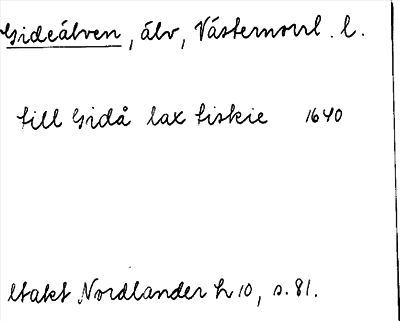 Gideälven, älv, Västernorrl. l.
till Gidå lax fiskie 1640
Utakt Nordlander h 10, s. 81.